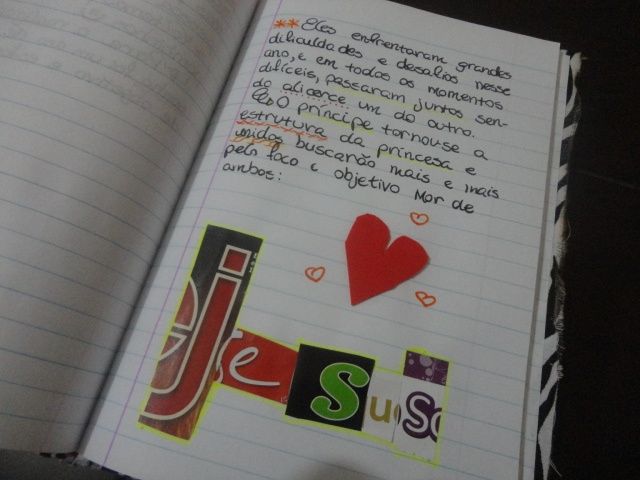 **Eles enfrentaram grandes
dificuldades e desafios nesse
ano, e em todos os momentos
difíceis, passaram juntos sen-
do alicerce um do outro.
O príncipe tornouse a
estrutura da princesa e
unidos buscarão mais e mais
pelo foco e objetivo Mor de
ambos:
jesus